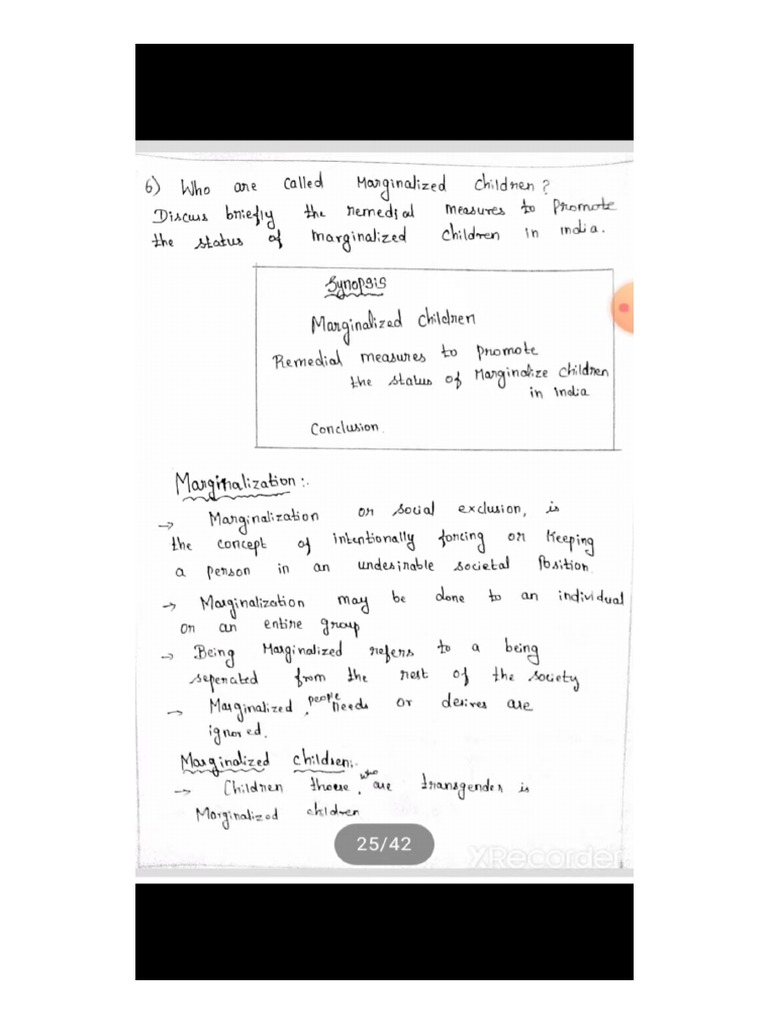 6) Who are called Marginalized children?
Discuss briefly the remedial measures to Promote
the status of marginalized children in india.
Synopsis
Marginalized children
Remedial measures to promote
the status of Marginalize children
in india
Conclusion.
Marginalization:.
→ Marginalization or social exclusion, is
the concept of intentionally forcing or keeping
a person in an undesirable societal Position.
→ Marginalization may be done to an individual
or an entire group
→ Being Marginalized refers to a being
seperated from the rest of the society
→ Marginalized people needs or desires are
ignored.
Marginalized children:.
→ Children those who are transgender is
Marginalized children
25/42
XRecorder